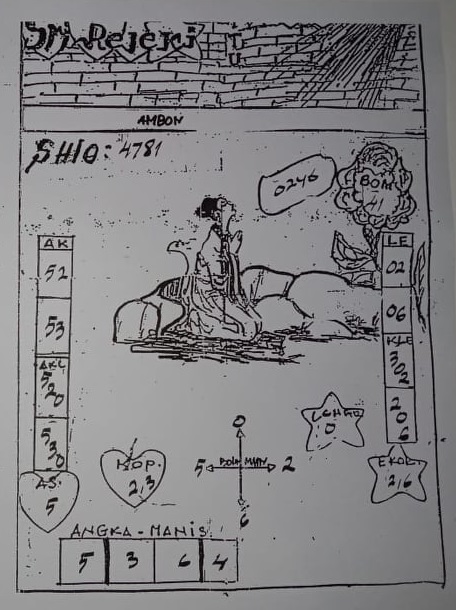 Sri Rejeki
AMBON
SHIO: 4781
0246
BOM
41
AK
52
53
AKL
520
530
AS.
5
LE
02
06
KLE
302
206
KOP.
2,3
0
5 POLA MAIN 2
6
0
EKOR.
2,6
ANGKA-MANIS
5 3 6 4